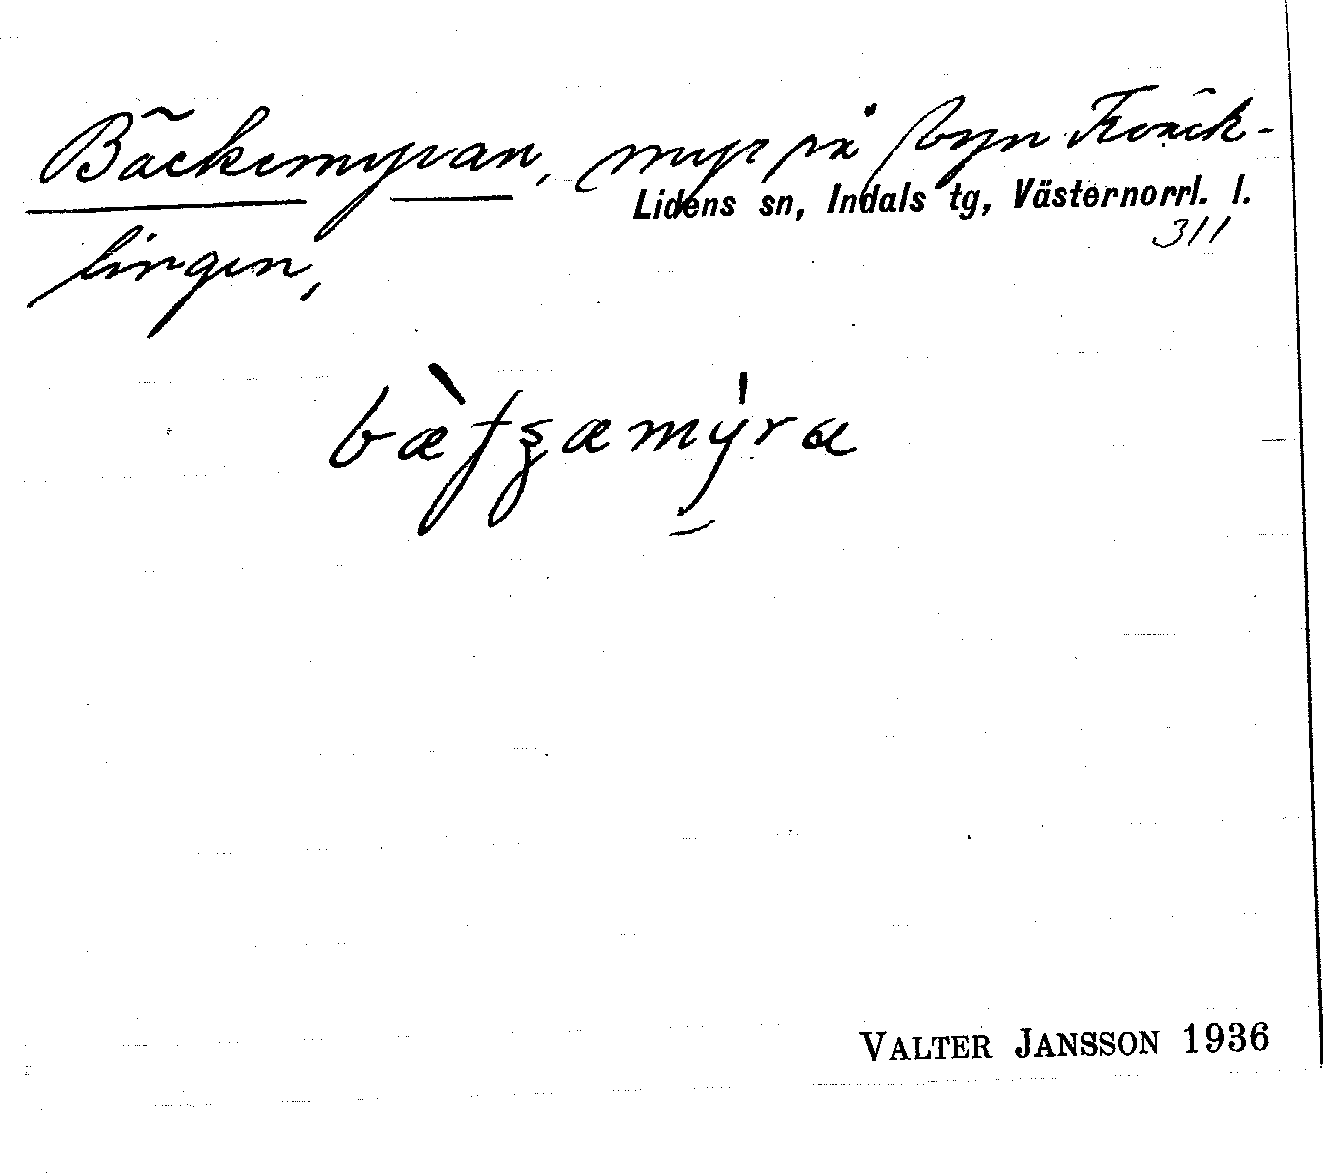 Bäckemyran, myr på byn Kväck-
Lidens sn, Indals tg, Västernorrl. l.
311
lingen,
VALTER JANSSON 1936